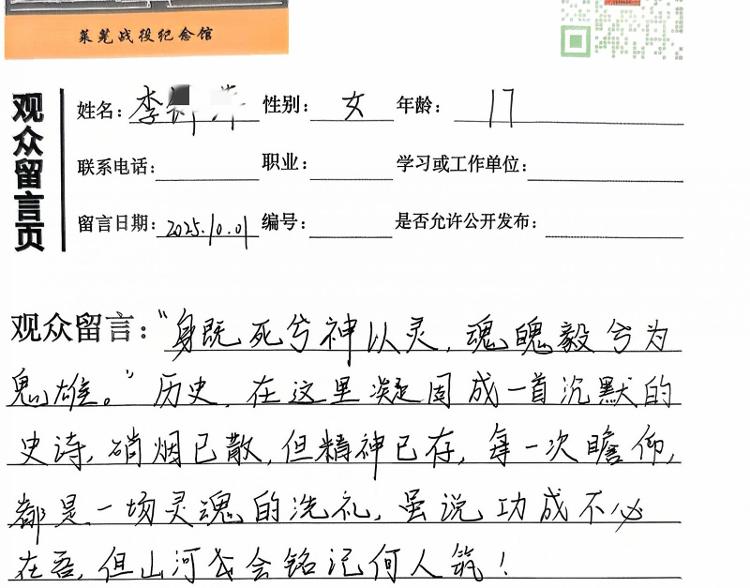 莱芜战役纪念馆
观众留言页
姓名：李 性别：女 年龄：17
联系电话： 职业： 学习或工作单位：
留言日期：2025.10.01 编号： 是否允许公开发布：
观众留言：“身既死兮神以灵，魂魄毅兮为
鬼雄。”历史，在这里凝固成一首沉默的
史诗，硝烟已散，但精神已存，每一次瞻仰，
都是一场灵魂的洗礼，虽说功成不必
在吾，但山河会铭记何人筑！